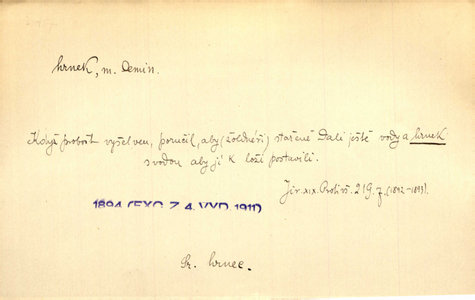 hrnek, m. Demin.
Když probošt vyšel ven, poručil, aby (žoldnéři) stařeně dali ještě vody a hrnek
s vodou aby jí k loži postavili.
Jir. XIX. Proti vš. 219. (1892-1893).
1894 (EXC. Z 4. VYD. 1911)
Sr. hrnec.